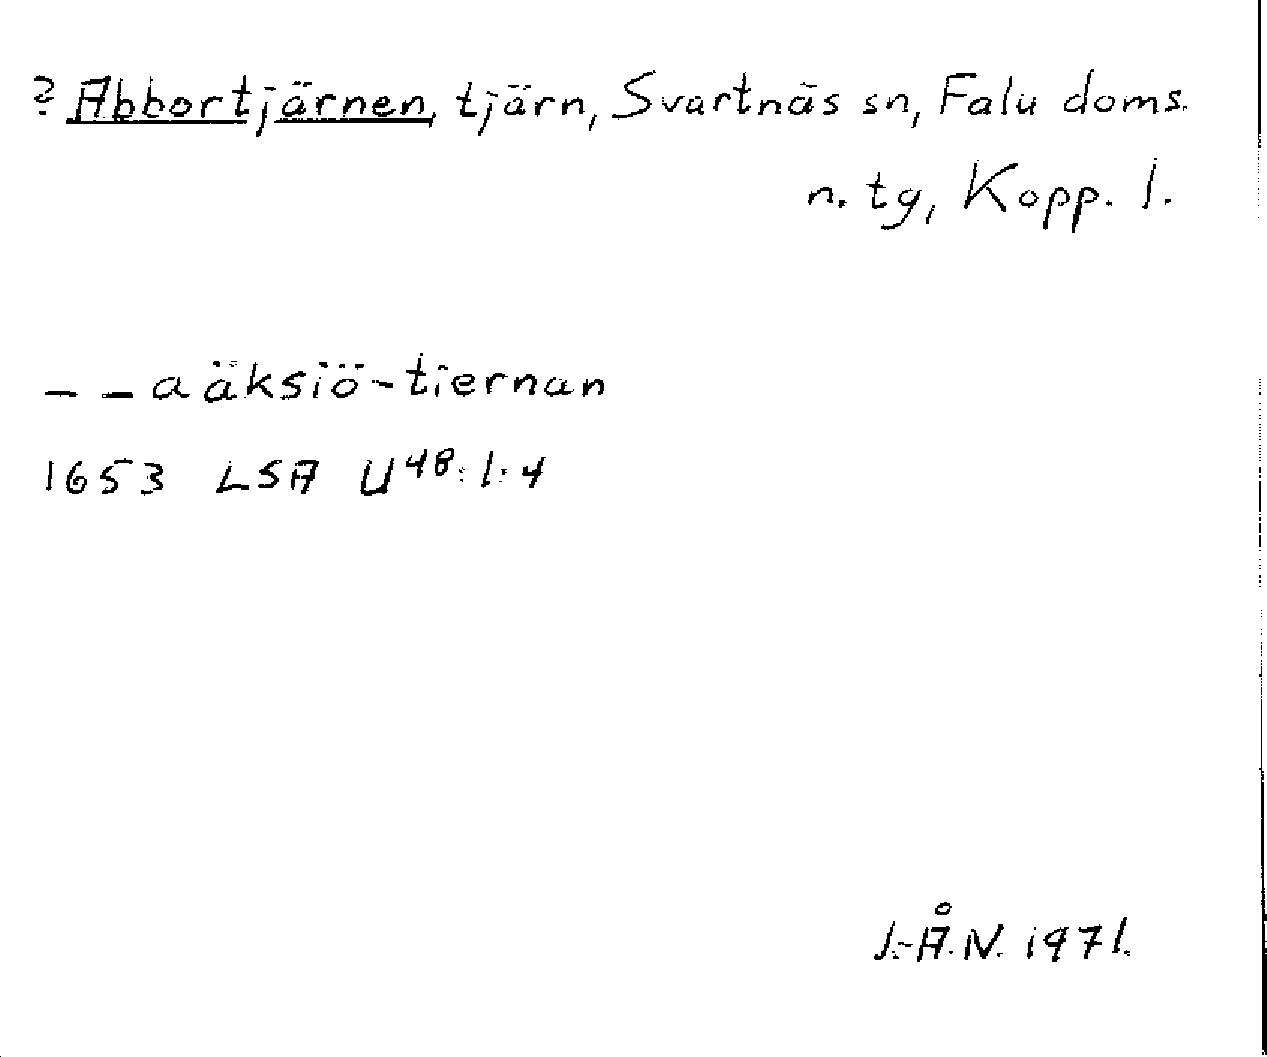 ? Abbortjärnen, tjärn, Svartnäs sn, Falu doms.
n. tg, Kopp. l.
– – a äksiö-tiernan
1653 LSA U48:1:4
J.-Å.N. 1971.